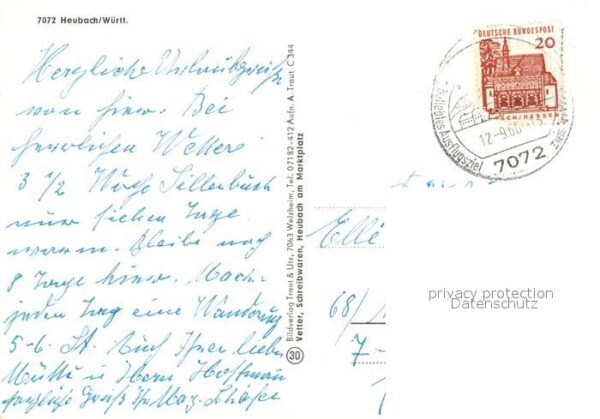 7072 Heubach/Württ.
Herzliche Urlaubsgrüße
von hier. Bei
herrlichen Wetter
3 1/2 Woche Sillenbuch
nur sieben Tage
warm. Bleibe noch
8 Tage hier. Mache
jeden Tag eine Wanderung
5-6 St. Auch Ihrer lieben
Mutti u Herrn Hoffman
herzliche Grüße Ihr Max Schäfer
Bildverlag Traut & Utz, 7063 Welzheim, Tel. 07182-412 Aufn. A. Traut C 344
Vetter, Schreibwaren, Heubach am Marktplatz
30
DEUTSCHE BUNDESPOST
20
LORSCH/HESSEN
beliebtes Ausflugsziel
7072
Elli
68/
7-
privacy protection
Datenschutz